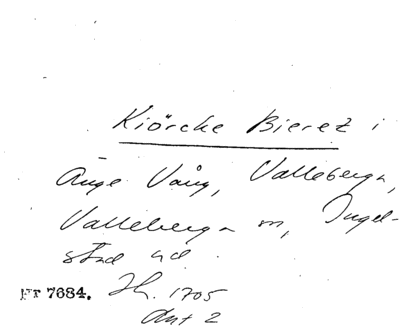 Kiörcke Bieret i
Ånge Vång, Valleberga,
Valleberga sn, Ingel-
stad hd.
PT 7684. Jh. 1705
Ant 2